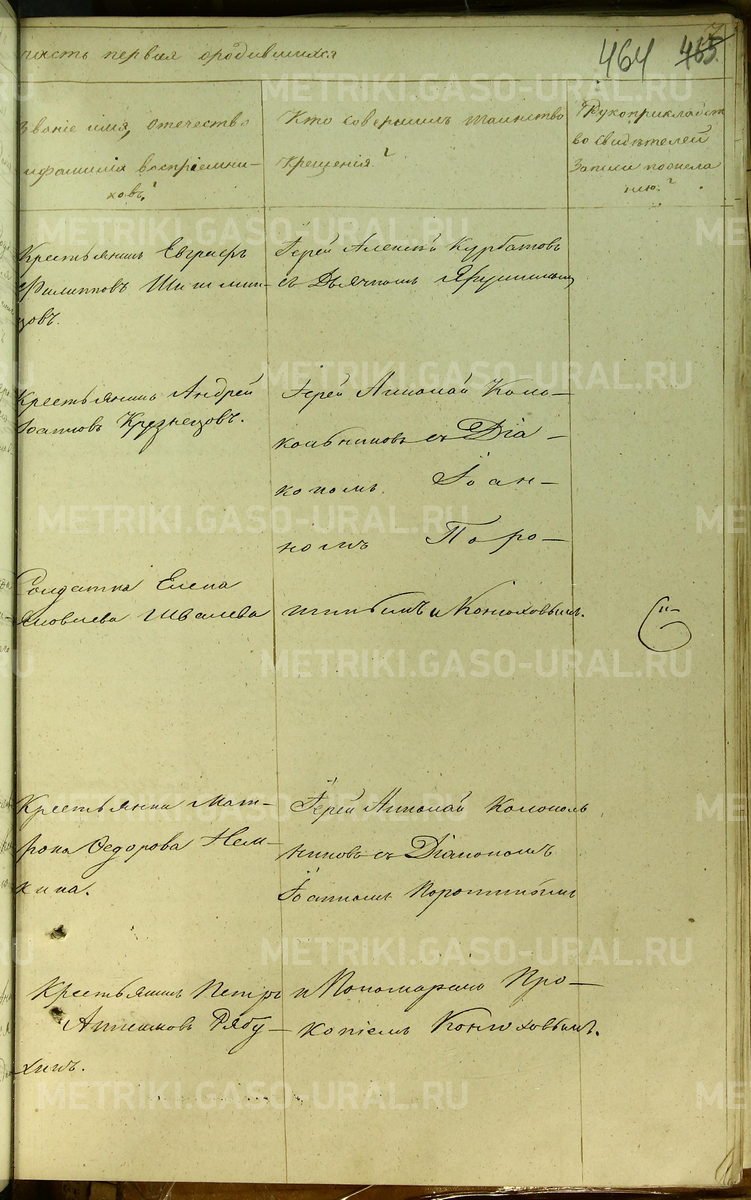 часть первая о родившихся
464 465
Званіе имя, отечество
и фамилія воспріемни-
ковъ?
Кто совершилъ таинство
крещенія?
Рукоприкладст
во свидѣтелей
Записи по жела
нію?
Крестьянинъ Евграфъ
Филипповъ
цовъ.
Іерей Алексѣй Курбатовъ
съ Дьячкомъ
Крестьянинъ Андрей
Іоанновъ Кузнецовъ.
Іерей Николай Коло-
кольниковъ съ Діа-
кономъ Іоан-
номъ Поро-
Солдатка Елена
Яковлева Швалева
шинымъ и Конюховымъ.
Крестьянка Мат-
рона Ѳедорова Нем-
кина.
Іерей Николай Колоколь
никовъ съ Діакономъ
Іоанномъ Порошинымъ
Крестьянинъ Петръ
Рябу-
хинъ.
и Пономаремъ Про-
копіемъ Конюховымъ.
METRIKI.GASO-URAL.RU